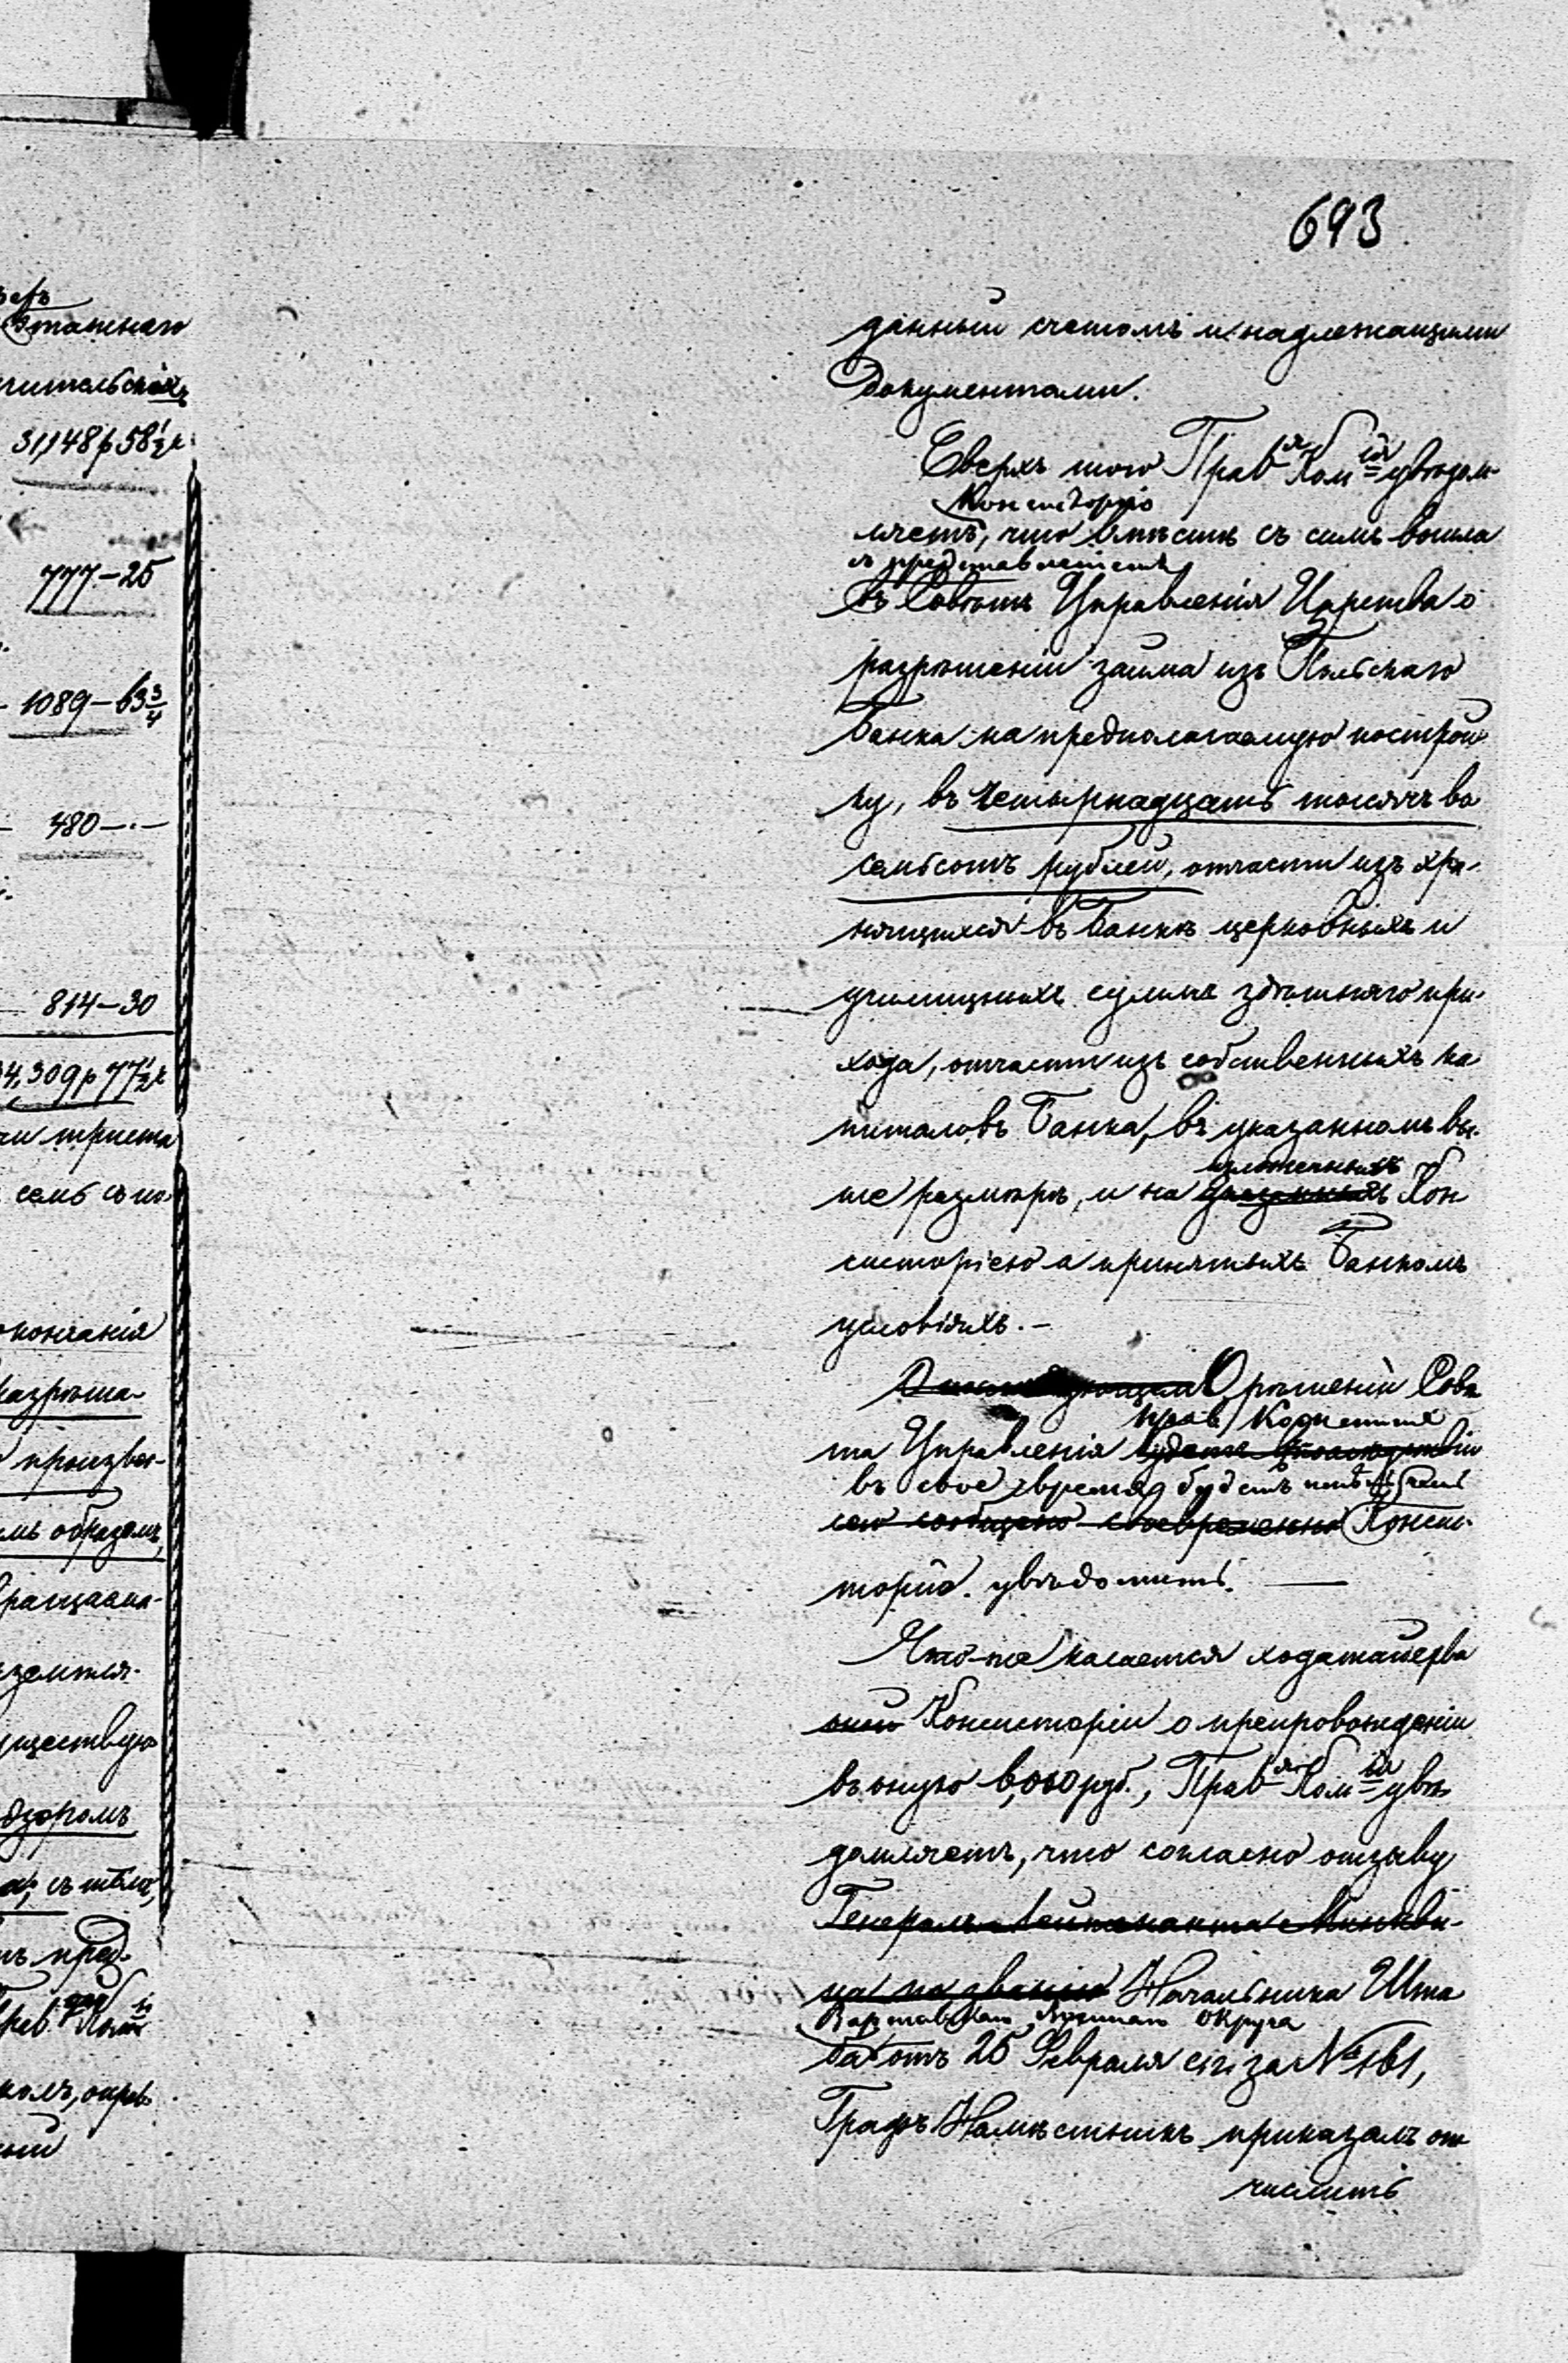 693
данный счетомъ и надлежащими
документами.
Сверхъ того Прав-ая Ком-ія увѣдом-
Консисторію
ляетъ, что вмѣстѣ съ симъ вошла
съ представленіемъ
въ Совѣтъ Управленія Царства о
разрѣшеніи займа изъ Польскаго
Банка на предполагаемую построй
ку, въ четырнадцать тысячъ во
семьсотъ рублей, отчасти изъ хра-
нящихся въ Банкѣ церковныхъ и
училищныхъ суммъ здѣшняго при-
хода, отчасти изъ собственныхъ ка
питаловъ Банка, въ указанномъ вы-
ше размѣрѣ, и на указанныхъ Кон
изложенныхъ
систоріею а принятыхъ Банкомъ
условіяхъ.-
О рѣшеніи Совѣ
та Управленія будетъ
Прав. Комисія
въ свое время будетъ имѣть честь
сею сообщено своевременно Конси-
торію увѣдомить. —
Что-же касается ходатайства
оной Консисторіи о препровожденіи
въ оную 6,000 руб., Прав-ая Ком-ія увѣ
домляетъ, что согласно отзыву
Генералъ-Лейтенанта Минкви-
ца по званію Начальника Шта
Варшавскаго Военнаго Округа
ба отъ 25 Февраля с.г. за № 161,
Графъ Намѣстникъ приказалъ от
числить
етъ
Этажнаго
чительскихъ
31,148 р 58½ к
777-25
- 1089-63¾
- 480-.-
814-30
34,309 р 77½ к
чи триста
семь съ по
окончанія
разрѣша-
произво-
мъ образомъ,
вращаема-
уществую
дзоромъ
а, съ тѣмъ,